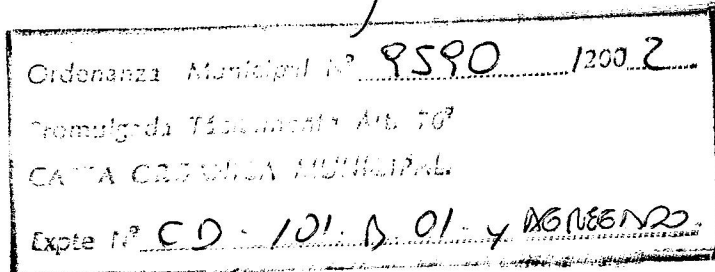 Ordenanza Municipal Nº 9590 /2002
Promulgada Tácitamente Art. 76º
CARTA ORGANICA MUNICIPAL.
Expte Nº CD. 101. B. 01. y AGREGADO.